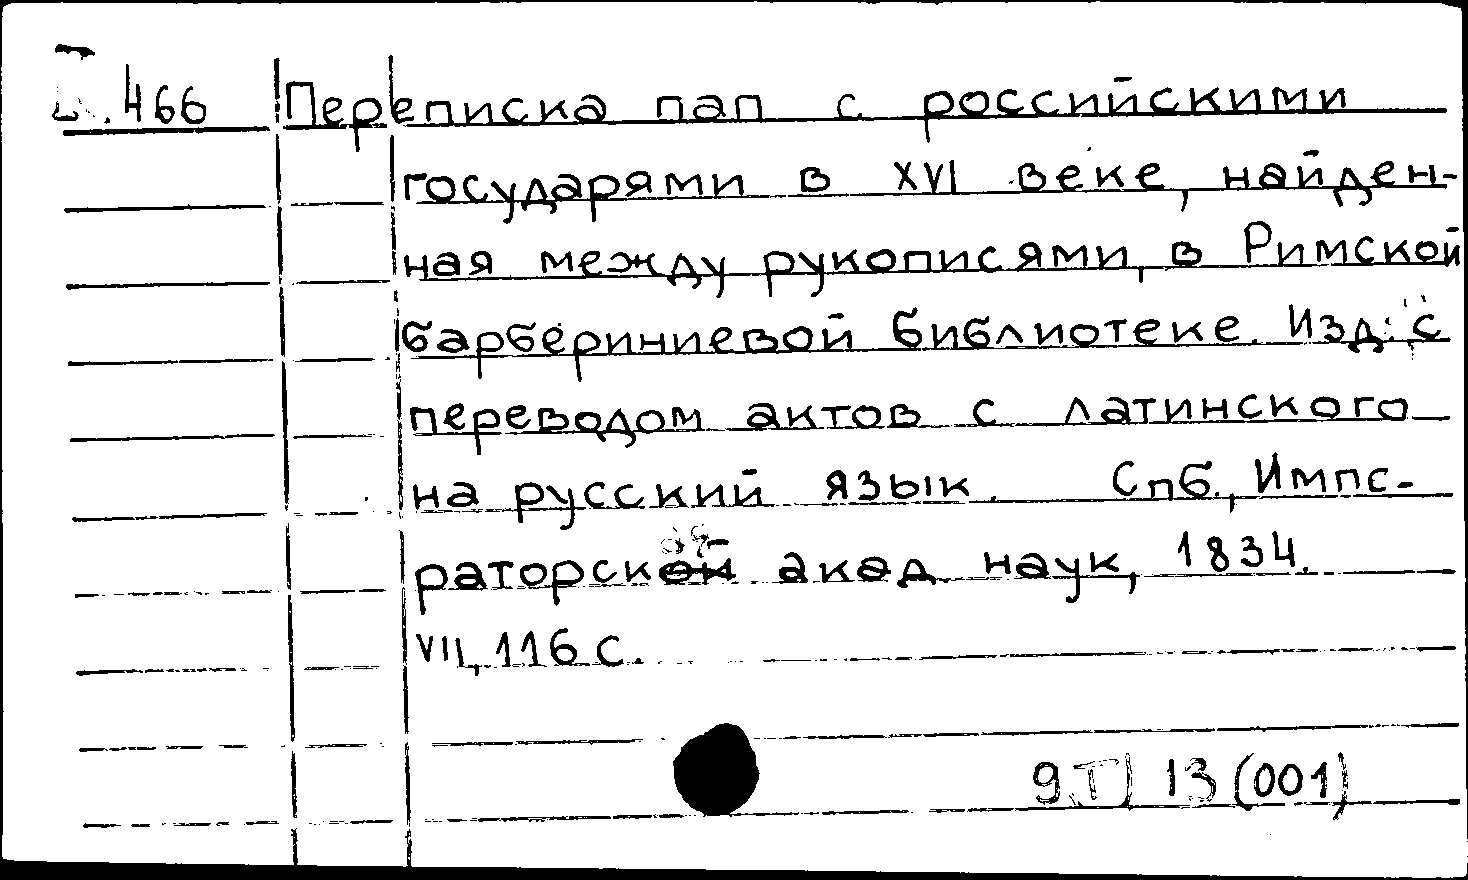 466 Переписка пап с российскими
государями в XVI веке, найден-
ная между рукописями, в Римской
барбериниевой библиотеке. Изд. с
переводом актов с латинского
на русский язык. Спб., Импе-
раторск. акад. наук, 1834.
VII, 116 с.
9(T)13(001)